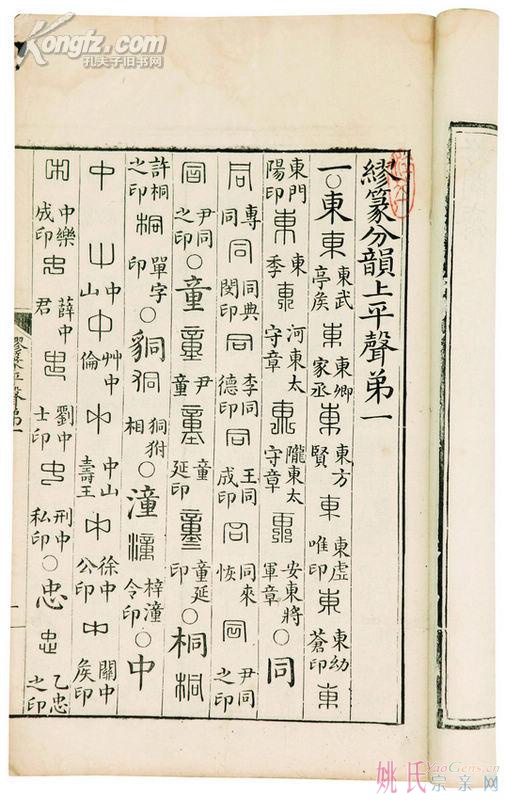 Kongfz.com
孔夫子旧书网
繆篆分韻上平聲弟一
一○東東東武亭矦東東鄉家丞東東方賢東東虛唯印東東幼蒼印東
東門陽印東東季東河東太守章東隴東太守章東安東將軍章○同
同專同同同典閔印同李同德印同王同成印同同來恢同尹同之印
同尹同之印○童童尹童童童延印童童延印○桐桐
許桐之印桐單字印○相○潼潼梓潼令印○中
中中中山中艸中倫中中山壽王中徐中公印中關中矦印
中中樂成印中薛中君中劉中士印中刑中私印○忠忠乙忠之印
繆篆平聲弟一
姚氏宗亲网
YaoGens.cn